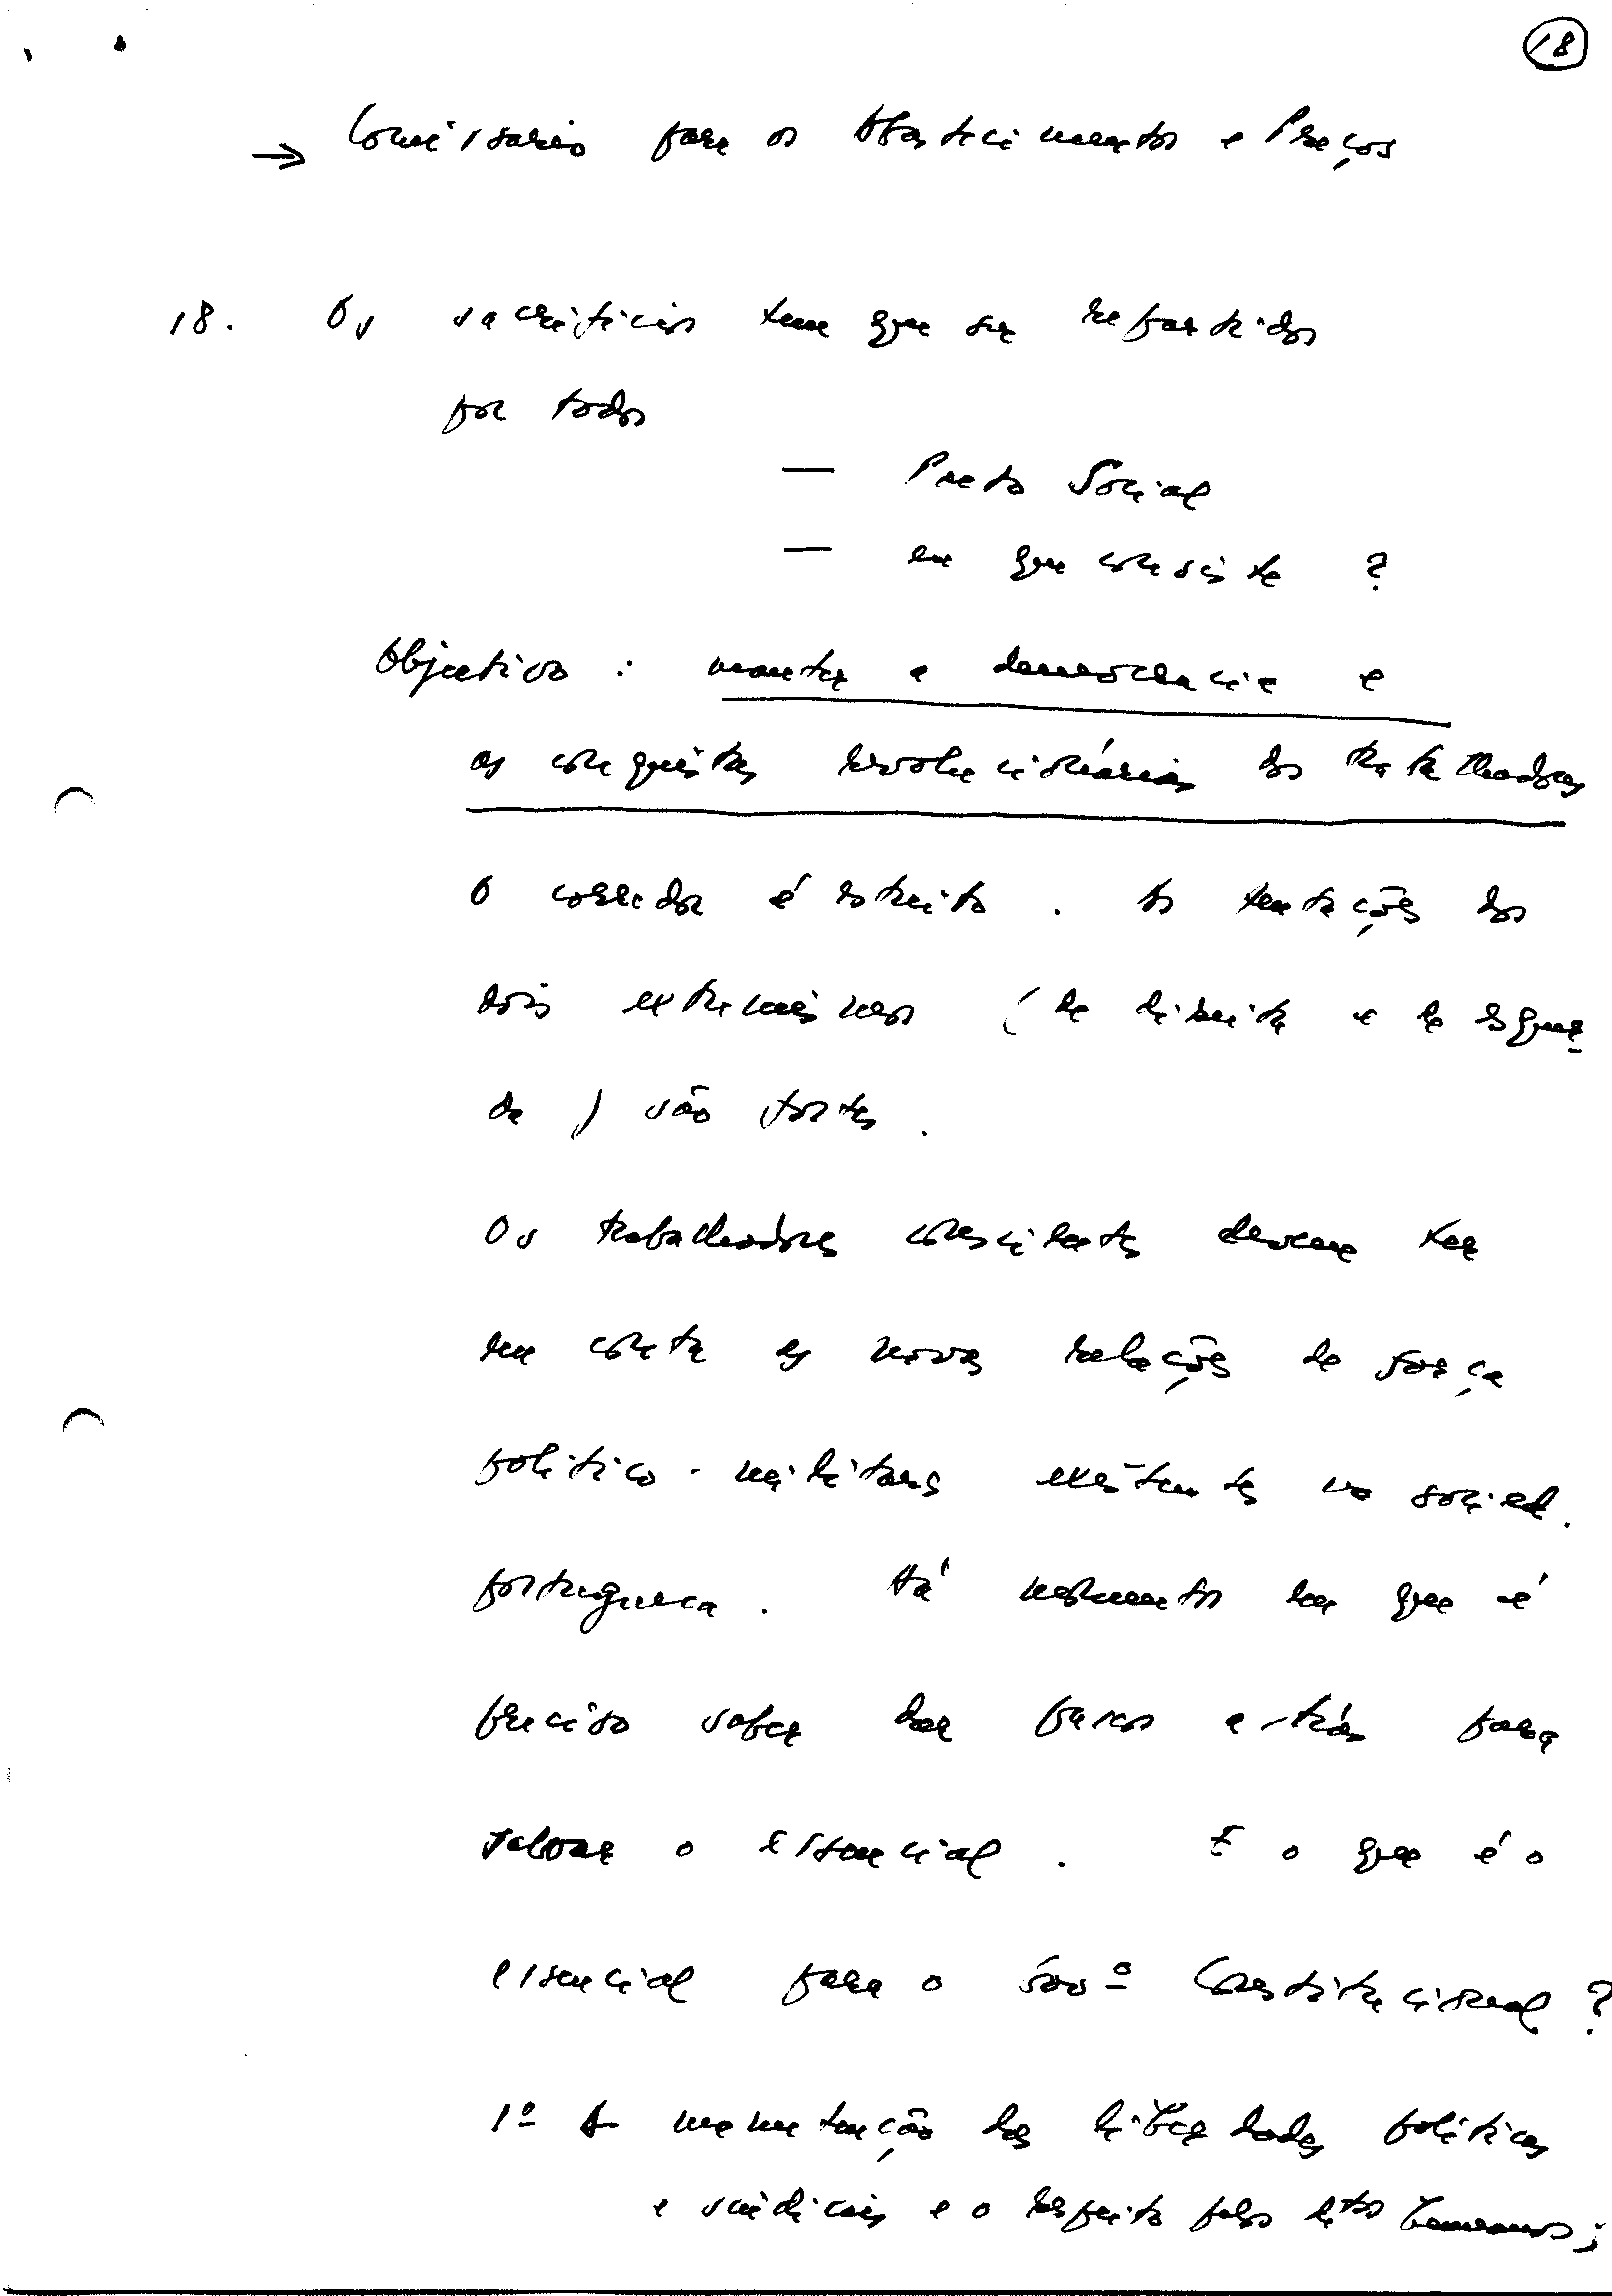 18
→ Comissário para os Abastecimentos e Preços
18. Os sacrifícios tem que ser repartidos
por todos
— Pacto Social
— em que consiste ?
Objectivo : manter a democracia e
as conquistas revolucionárias dos trabalhadores
O corredor é estreito . As tentações dos
dois extremismos ( de direita e de esquer-
da ) são fortes .
Os trabalhadores conscientes devem ter
em conta as novas relações de força
político-militares existentes na socied.
portuguesa . Há momentos em que é
preciso saber dar passos a-trás para
salvar o essencial . E o que é o
essencial para o Govº Constitucional ?
1º A manutenção das liberdades políticas
e sindicais e o respeito pelos dtos humanos ;